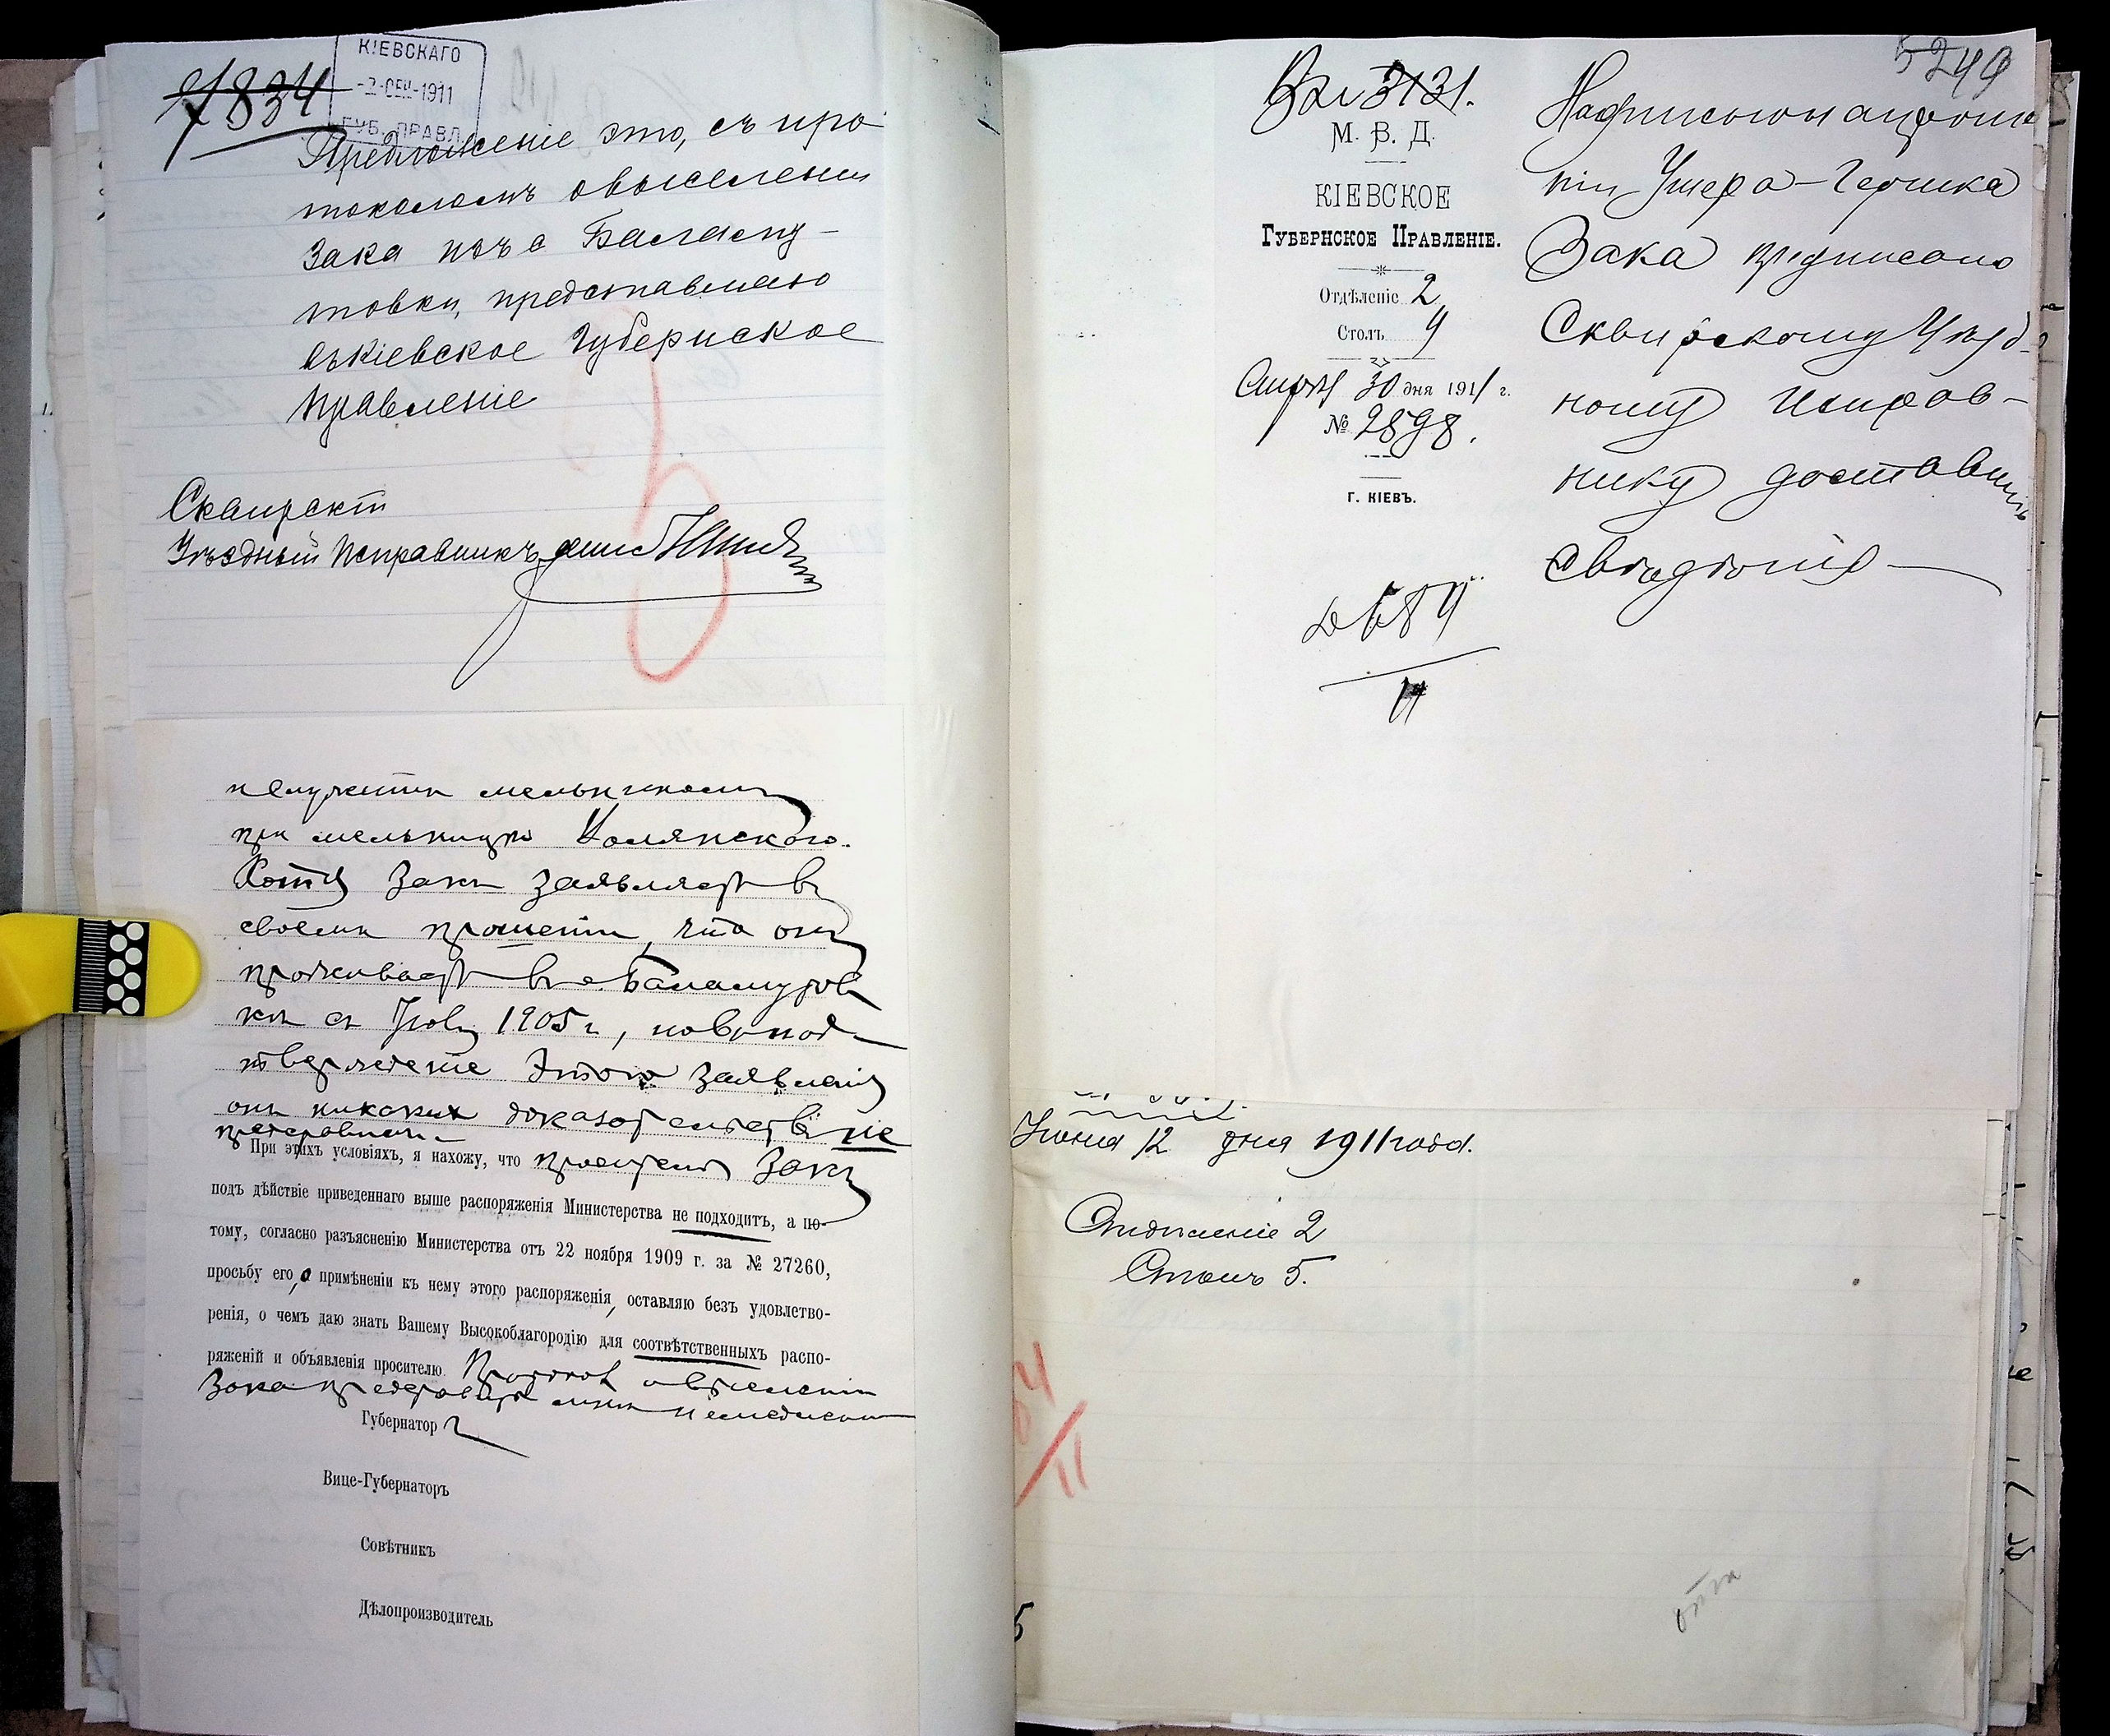 7834
КІЕВСКАГО
-2 СЕН 1911
ГУБ. ПРАВЛ.
Предложеніе это, съ про-
токоломъ о выселеніи
Зака изъ с. Баламу-
товки, представляю
въ Кіевское Губернское
Правленіе
Сквирскій
Уѣздный Исправникъ
и служитъ мельникомъ
при мельницѣ
Хотя Закъ заявляетъ въ
своемъ прошеніи, что онъ
проживаетъ въ с. Баламутов-
кѣ съ 1905 г., но въ под-
твержденіе этого заявленія
онъ никакихъ доказательствъ не
представилъ.
При этихъ условіяхъ, я нахожу, что проситель Закъ
подъ дѣйствіе приведеннаго выше распоряженія Министерства не подходитъ, а по-
тому, согласно разъясненію Министерства отъ 22 ноября 1909 г. за № 27260,
просьбу его, о примѣненіи къ нему этого распоряженія, оставляю безъ удовлетво-
ренія, о чемъ даю знать Вашему Высокоблагородію для соотвѣтственныхъ распо-
ряженій и объявленія просителю. Протоколъ о выселеніи
Зака представить мнѣ немедленно
Губернаторъ
Вице-Губернаторъ
Совѣтникъ
Дѣлопроизводитель
5249
Вх 3131.
М. В. Д.
КІЕВСКОЕ
ГУБЕРНСКОЕ ПРАВЛЕНІЕ.
Отдѣленіе 2
Столъ 4
Апрѣля 30 дня 1911 г.
№ 2898.
Г. КІЕВЪ.
Надписью на проше-
ніи Ушера-Гершка
Зака предписано
Сквирскому Уѣзд-
ному Исправ-
нику доставить
свѣдѣнія
Іюня 12 дня 1911 года.
Отдѣленіе 2
Столъ 5.
11
5